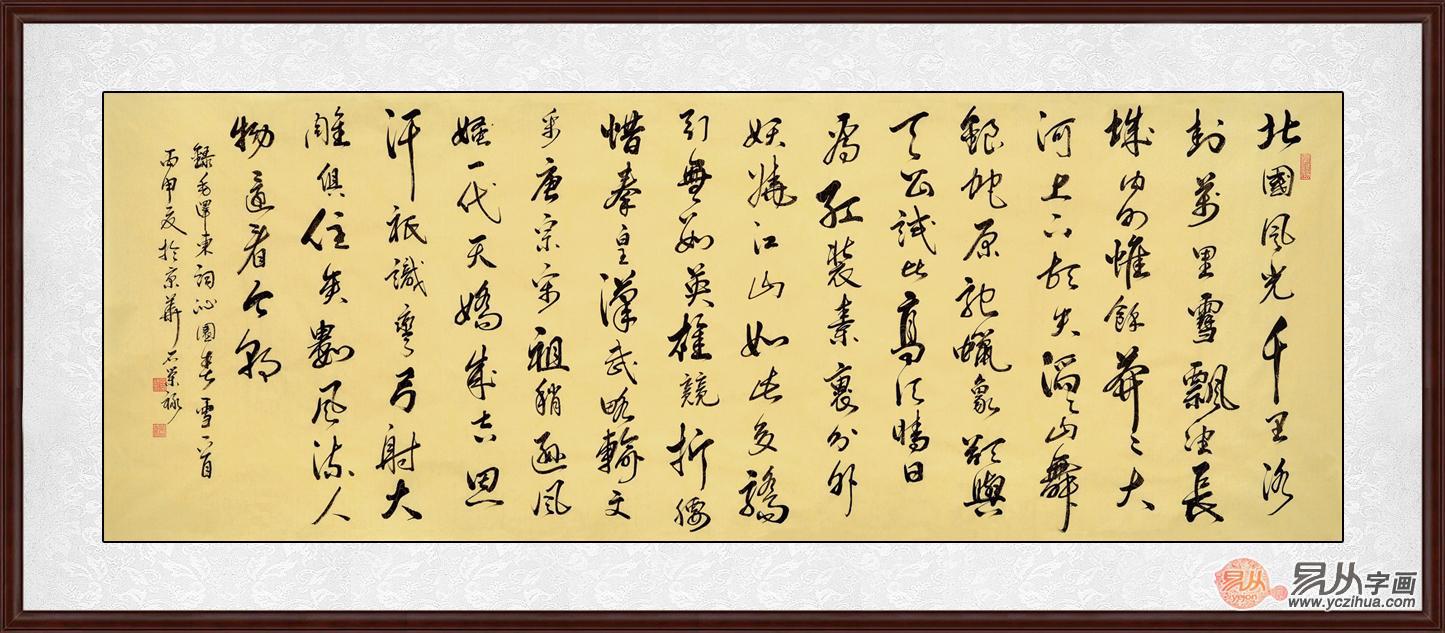 北國風光千里冰
封萬里雪飄望長
城內外惟餘莽〻大
河上下頓失滔〻山舞
銀蛇原馳蠟象欲與
天公試比高須晴日
看紅裝素裹分外
妖嬈江山如此多驕
引無數英雄競折腰
惜秦皇漢武略輸文
采唐宗宋祖稍遜風
騷一代天嬌成吉思
汗祇識彎弓射大
雕俱往矣數風流人
物還看今朝
錄毛澤東詞沁園春雪一首
丙申夏於京華石榮祿
易从 yiycn 易从字画
www.yczihua.com